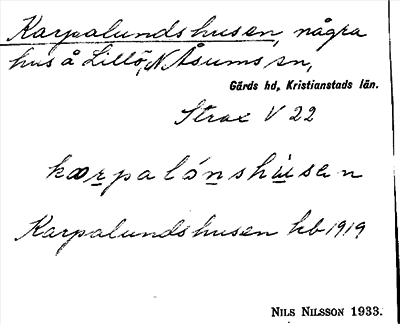 Karpalundshusen, några
hus å Lillö, N. Åsums sn,
Gärds hd, Kristianstads län.
Strax V 22
kærpalónshùsen
Karpalundshusen hb 1919
NILS NILSSON 1933.